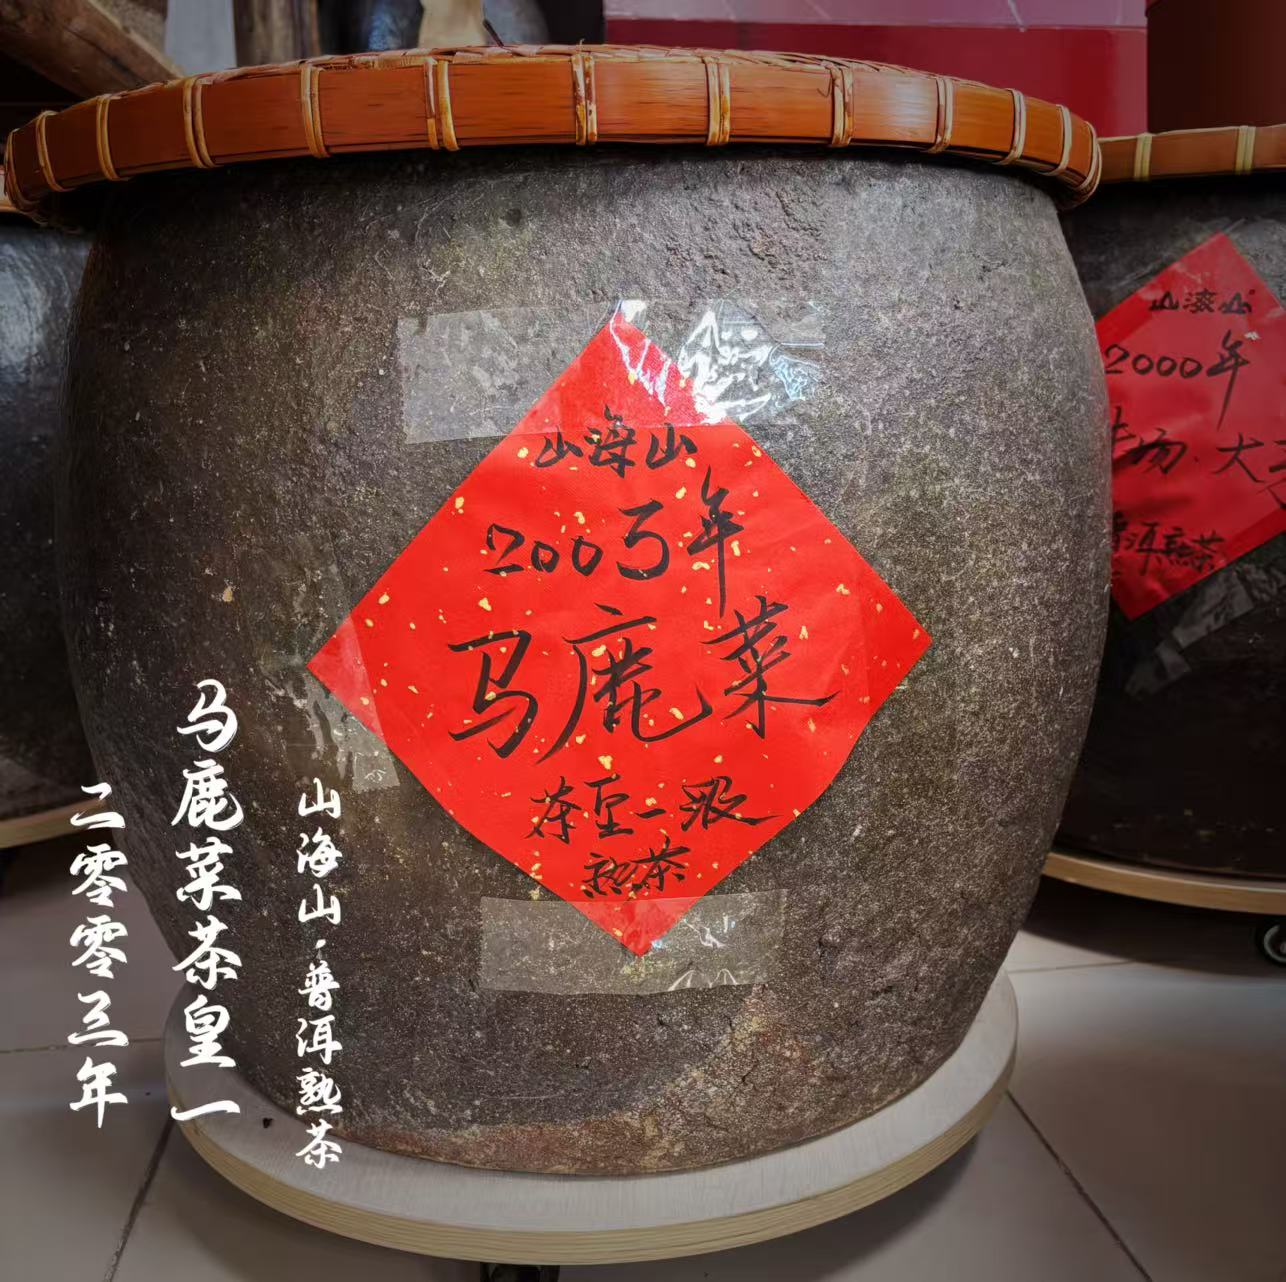 山海山
2003年
马鹿菜
茶皇一级
熟茶
山海山
2000年
普洱熟茶
山海山·普洱熟茶
马鹿菜茶皇一
二零零三年